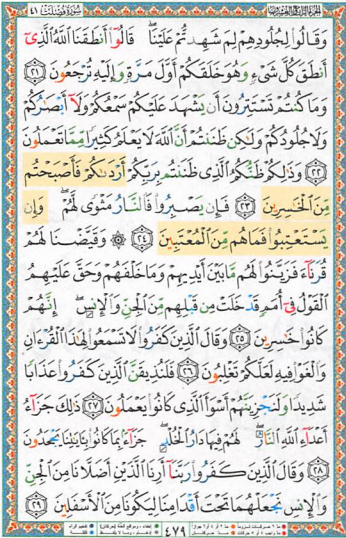 سُورَةُ فُصِّلَتْ ٤١
وَقَالُوا۟ لِجُلُودِهِمْ لِمَ شَهِدتُّمْ عَلَيْنَا ۖ قَالُوٓا۟ أَنطَقَنَا ٱللَّهُ ٱلَّذِىٓ
أَنطَقَ كُلَّ شَىْءٍ وَهُوَ خَلَقَكُمْ أَوَّلَ مَرَّةٍ وَإِلَيْهِ تُرْجَعُونَ ٢١
وَمَا كُنتُمْ تَسْتَتِرُونَ أَن يَشْهَدَ عَلَيْكُمْ سَمْعُكُمْ وَلَآ أَبْصَٰرُكُمْ
وَلَا جُلُودُكُمْ وَلَٰكِن ظَنَنتُمْ أَنَّ ٱللَّهَ لَا يَعْلَمُ كَثِيرًا مِّمَّا تَعْمَلُونَ
٢٢ وَذَٰلِكُمْ ظَنُّكُمُ ٱلَّذِى ظَنَنتُم بِرَبِّكُمْ أَرْدَىٰكُمْ فَأَصْبَحْتُم
مِّنَ ٱلْخَٰسِرِينَ ٢٣ فَإِن يَصْبِرُوا۟ فَٱلنَّارُ مَثْوًى لَّهُمْ ۖ وَإِن
يَسْتَعْتِبُوا۟ فَمَا هُم مِّنَ ٱلْمُعْتَبِينَ ٢٤ ۞ وَقَيَّضْنَا لَهُمْ
قُرَنَآءَ فَزَيَّنُوا۟ لَهُم مَّا بَيْنَ أَيْدِيهِمْ وَمَا خَلْفَهُمْ وَحَقَّ عَلَيْهِمُ
ٱلْقَوْلُ فِىٓ أُمَمٍ قَدْ خَلَتْ مِن قَبْلِهِم مِّنَ ٱلْجِنِّ وَٱلْإِنسِ ۖ إِنَّهُمْ
كَانُوا۟ خَٰسِرِينَ ٢٥ وَقَالَ ٱلَّذِينَ كَفَرُوا۟ لَا تَسْمَعُوا۟ لِهَٰذَا ٱلْقُرْءَانِ
وَٱلْغَوْا۟ فِيهِ لَعَلَّكُمْ تَغْلِبُونَ ٢٦ فَلَنُذِيقَنَّ ٱلَّذِينَ كَفَرُوا۟ عَذَابًا
شَدِيدًا وَلَنَجْزِيَنَّهُمْ أَسْوَأَ ٱلَّذِى كَانُوا۟ يَعْمَلُونَ ٢٧ ذَٰلِكَ جَزَآءُ
أَعْدَآءِ ٱللَّهِ ٱلنَّارُ ۖ لَهُمْ فِيهَا دَارُ ٱلْخُلْدِ ۖ جَزَآءًۢ بِمَا كَانُوا۟ بِـَٔايَٰتِنَا يَجْحَدُونَ
٢٨ وَقَالَ ٱلَّذِينَ كَفَرُوا۟ رَبَّنَآ أَرِنَا ٱلَّذَيْنِ أَضَلَّانَا مِنَ ٱلْجِنِّ
وَٱلْإِنسِ نَجْعَلْهُمَا تَحْتَ أَقْدَامِنَا لِيَكُونَا مِنَ ٱلْأَسْفَلِينَ ٢٩
٤٧٩